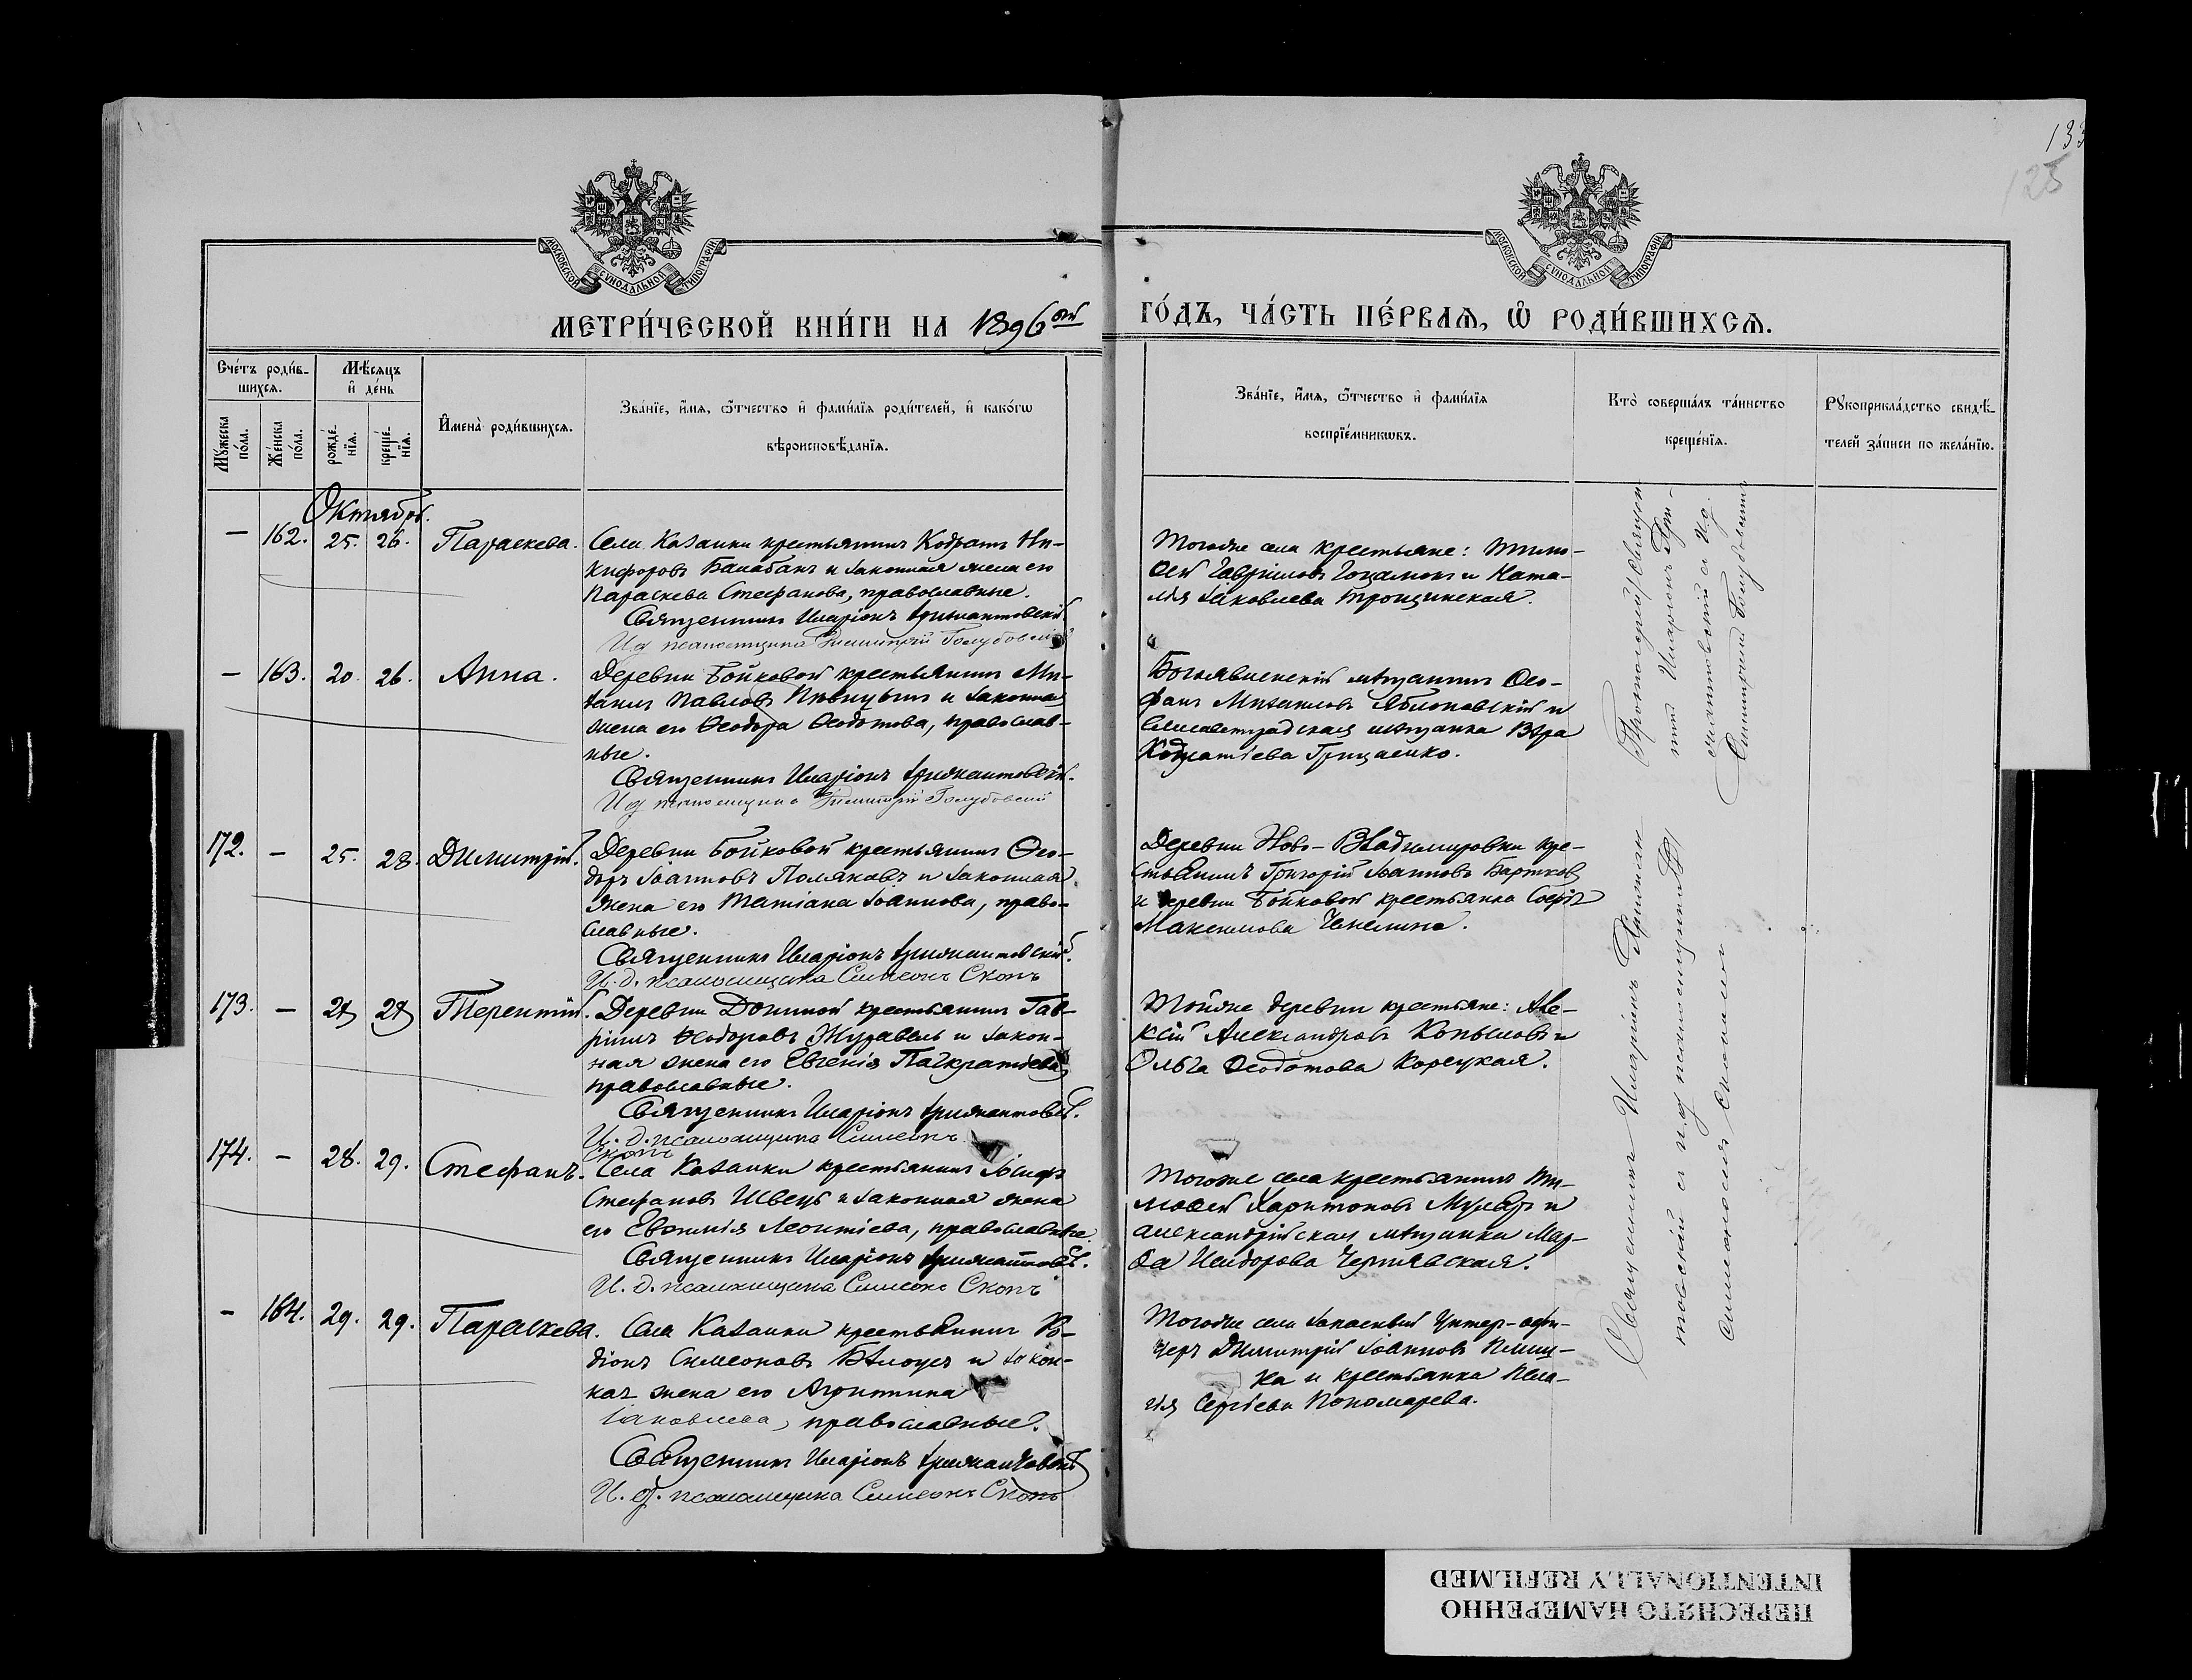 133
125
МОСКОВСКОЙ СѴНОДАЛЬНОЙ ТИПОГРАФІИ
МОСКОВСКОЙ СѴНОДАЛЬНОЙ ТИПОГРАФІИ
МЕТРИ́ЧЕСКОЙ КНИ́ГИ НА 1896ой
ГО́ДЪ, ЧА́СТЬ ПЕ́РВАѦ, Ѿ РОДИ́ВШИХСѦ.
Сче́тъ роди́в-
шихсѧ.
Мꙋ́жеска по́ла.
Же́нска по́ла.
Мѣ́сѧцъ
и҆ де́нь
рожде́-
нїѧ.
креще́-
нїѧ.
И҆мена̀ роди́вшихсѧ.
Зва́нїе, и҆́мѧ, ѻ҆́тчество и҆ фами́лїѧ роди́телей, и҆ како́гѡ
вѣроисповѣ́данїѧ.
Зва́нїе, и҆́мѧ, ѻ҆́тчество и҆ фами́лїѧ
воспрїе́мникѡвъ.
Кто̀ соверша́лъ та́инство
креще́нїѧ.
Рꙋкоприкла́дство свидѣ́-
телей за́писи по жела́нїю.
Октябрь.
— 162. 25. 26. Параскева.
Села Казанки крестьянинъ Кодратъ Ни-
кифоровъ Балабанъ и законная жена его
Параскева Стефанова, православные.
Священникъ Иларіонъ
Ид псаломщика Димитрій Голубовскій
Тогоже села крестьяне: Тимо-
ѳей Гавріиловъ и Ната-
лія Іаковлева Трощинская.
— 163. 20. 26. Анна.
Деревни Бойковой крестьянинъ Ми-
хаилъ Павловъ и законная
жена его Ѳеодора Ѳеодотова, православ-
ные.
Священникъ Иларіонъ
Ид псаломщика Димитрій Голубовскій
Богоявленскій мѣщанинъ Ѳео-
фанъ Михаиловъ Яблоновскій и
Елисаветградская мѣщанка Вѣра
Кодратіева Грицаенко.
172. — 25. 28. Димитрій.
Деревни Бойковой крестьянинъ Ѳео-
доръ Іоанновъ Поляковъ и законная
жена его Татіана Іоаннова, право-
славные.
Священникъ Иларіонъ
И. д. псаломщика Симеонъ Скопъ
Деревни Ново-Владимировки кре-
стьянинъ Григорій Іоанновъ
и деревни Бойковой крестьянка Софія
Максимова
173. — 27 27 Терентій.
Деревни Долиной крестьянинъ Гав-
ріилъ Ѳеодоровъ Журавель и закон-
ная жена его Евгенія Панкратіева,
православные.
Священникъ Иларіонъ
И. д. псаломщика Симеонъ
Скопъ
Тойже деревни крестьяне: Але-
ксій Александровъ Копыловъ и
Ольга Ѳеодотова Корецкая.
174. — 28. 29. Стефанъ.
Села Казанки крестьянинъ Іосифъ
Стефановъ Швецъ и законная жена
его Евѳимія Леонтіева, православные.
Священникъ Иларіонъ
И. д. псаломщика Симеонъ Скопъ
Тогоже села крестьянинъ Ти-
моѳей Харитоновъ Муляръ и
Александрійская мѣщанка Мар-
ѳа Исидорова Чернявская.
— 164. 29. 29. Параскева.
Села Казанки крестьянинъ Ро-
діонъ Симеоновъ Бѣлоусъ и закон-
ная жена его Агриппина
Іаковлева, православные.
Священникъ Иларіонъ
И. д. псаломщика Симеонъ Скопъ
Тогоже села запасный унтер-офи-
церъ Димитрій Іоанновъ
ка и крестьянка Пела-
гія Сергіева Пономарева.
Димитрий Голубовский
Священникъ Иларіонъ
ПЕРЕСНЯТО НАМЕРЕННО
INTENTIONALLY REFILMED